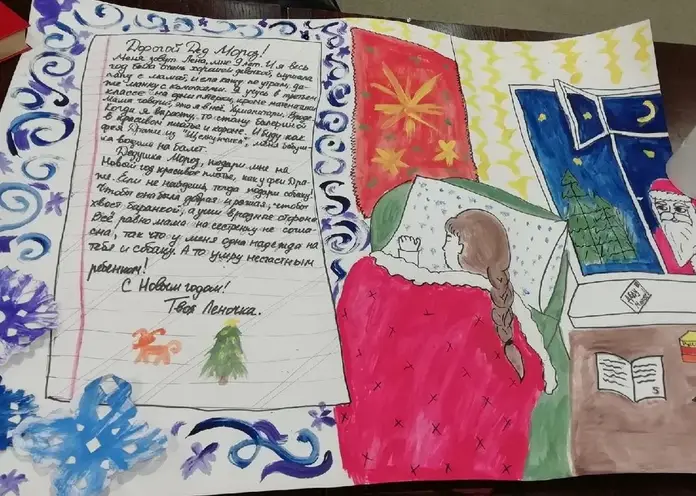 Дорогой Дед Мороз!
Меня зовут Лена, мне 9 лет. И я весь
год была очень хорошей девочкой, слушала
папу с мамой, и ела кашу по утрам, да-
же манку с комочками. Я учусь в третьем
классе на одни пятёрки, кроме математики.
Мама говорит, что я в неё. Гуманитарий. Вроде.
Когда я вырасту, то стану балериной
в красивом платье и короне. И буду как
фея Драже из "Щелкунчика", меня бабуш-
ка водила на балет.
Дедушка Мороз, подари мне на
Новый год красивое платье, как у феи Дра-
же. Если не найдёшь, тогда подари собаку.
Чтобы она была добрая и рыжая, и чтоб
хвост баранкой, а уши в разные стороны.
Всё равно мама на сестрёнку не согла-
сна, так что у меня одна надежда на
тебя и собаку. А то умру несчастным
ребёнком!
С Новым годом!
Твоя Леночка.